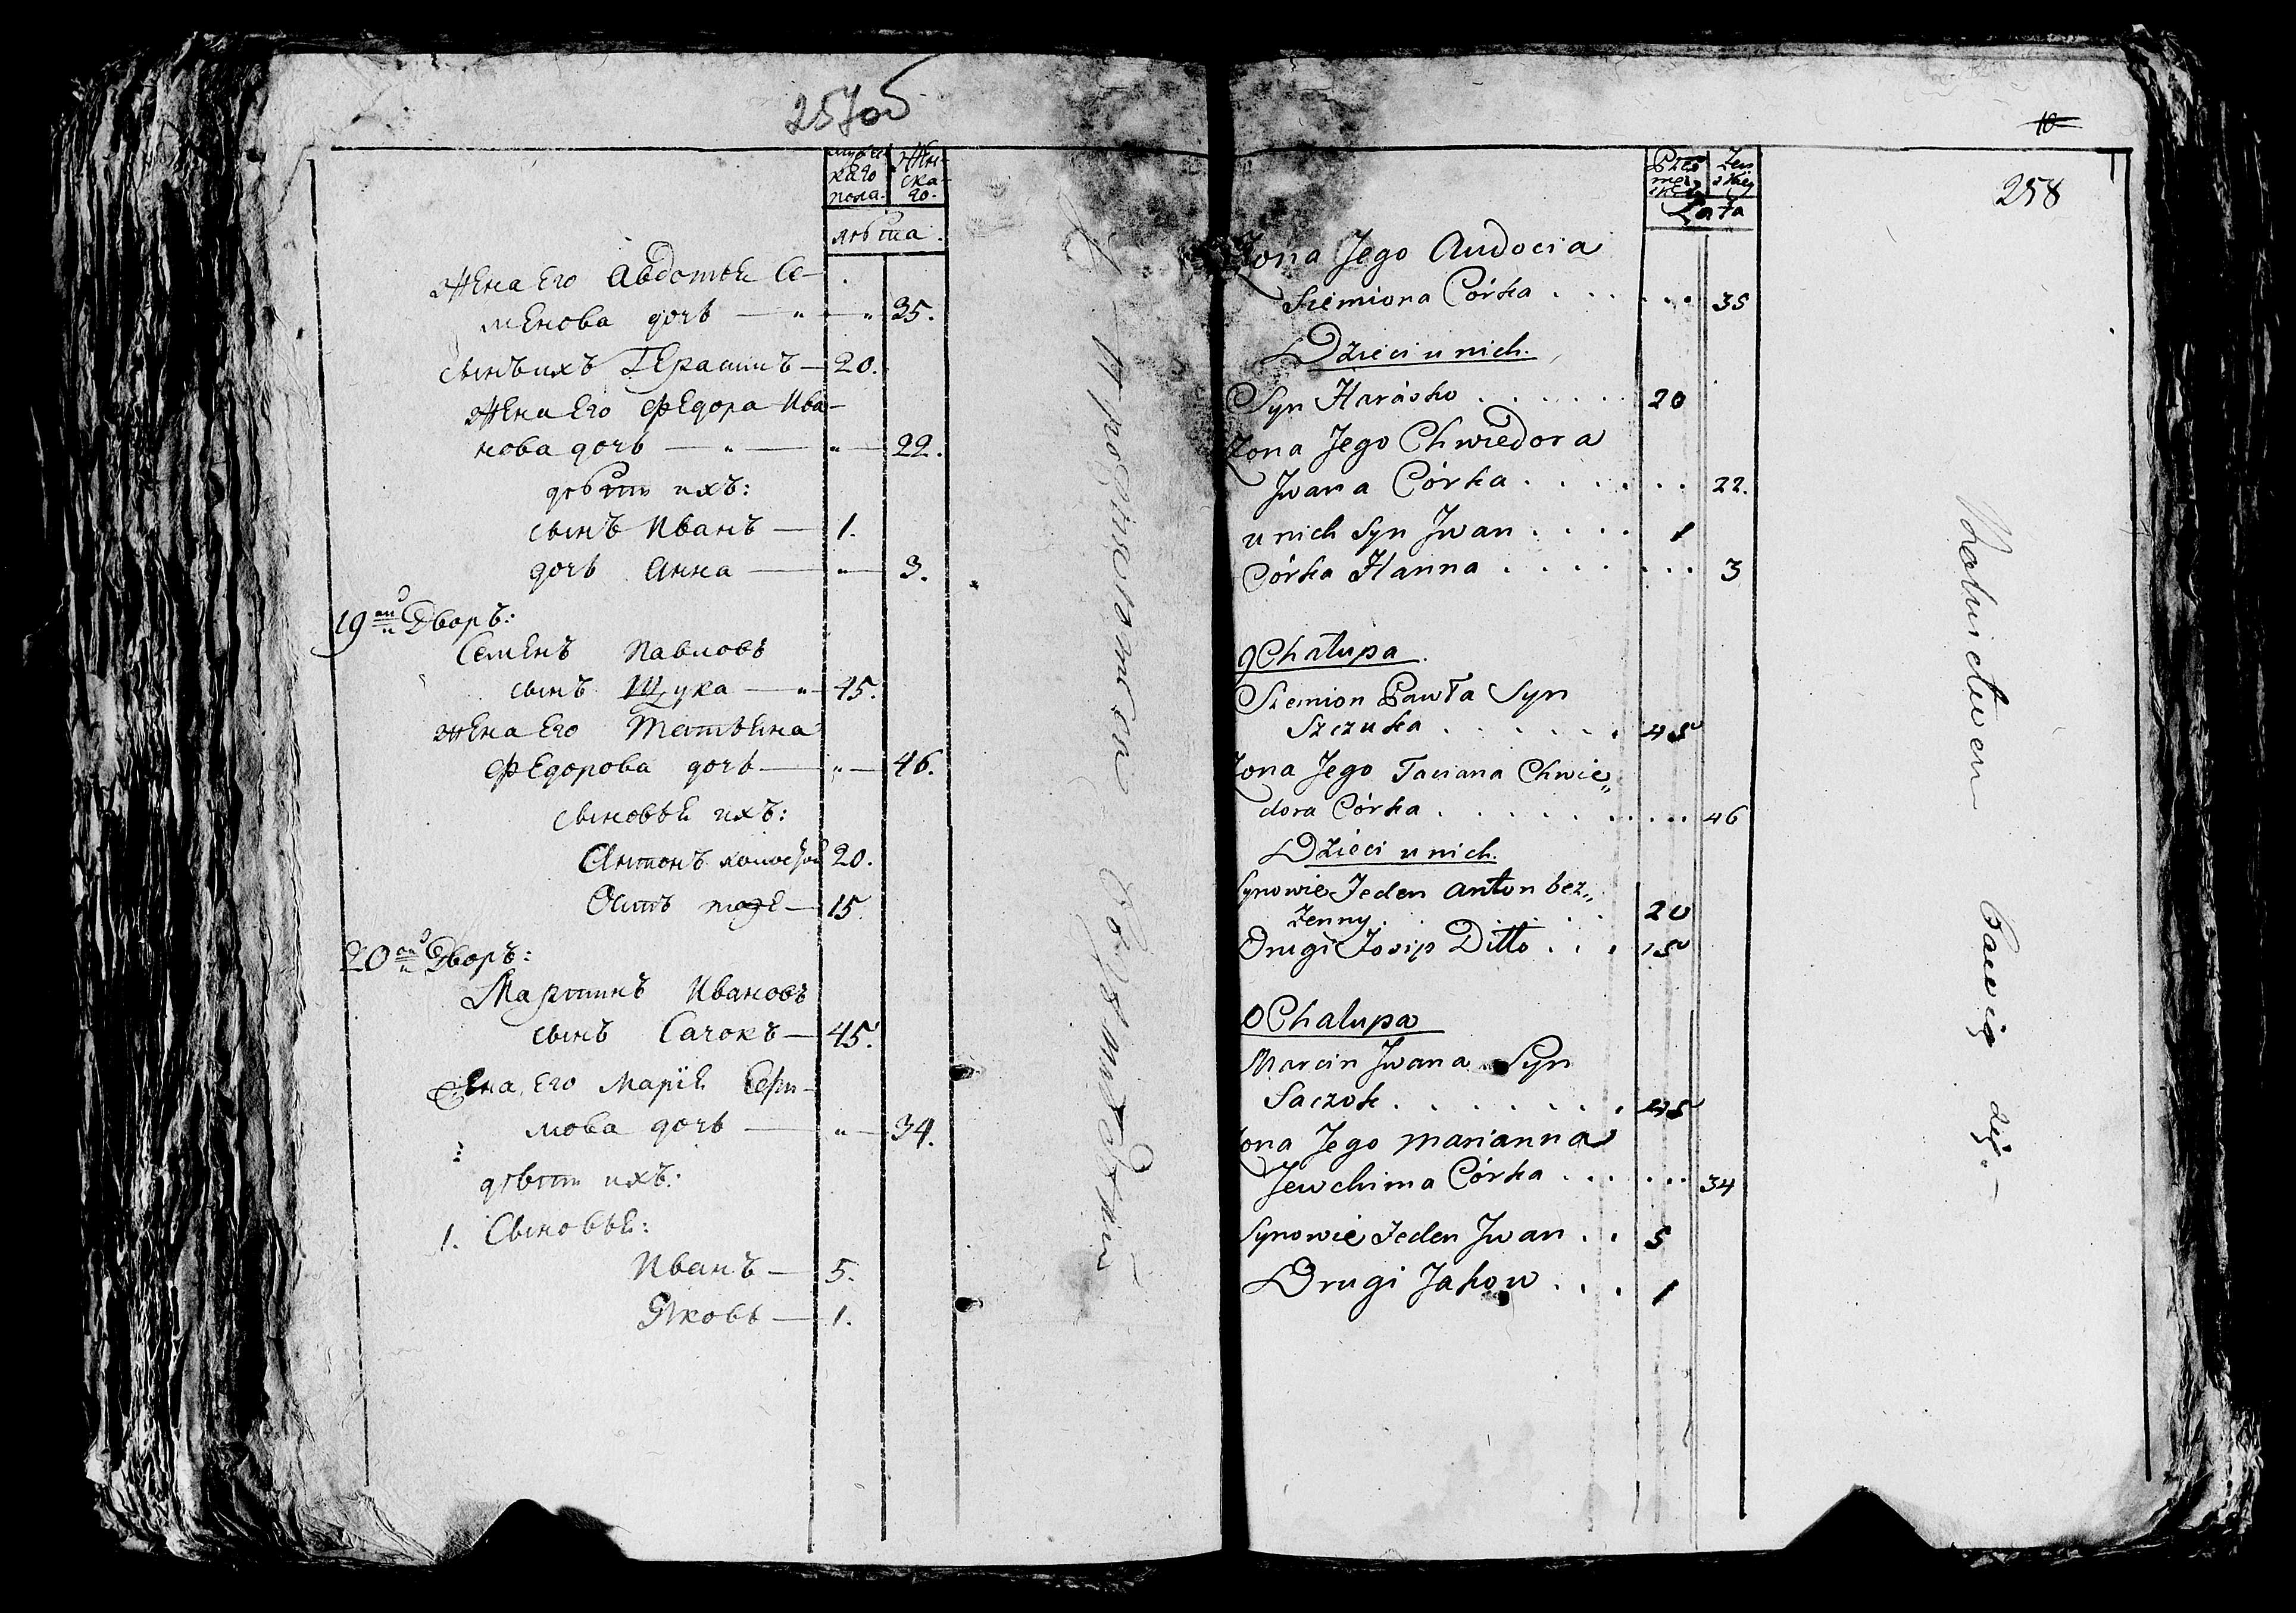 257об
мужес
каго
пола.
жен-
ска-
го.
лѣта.
жена его Авдотья Се-
менова дочь — „ — „ 35.
сынъ ихъ Герасимъ — 20.
жена его Федора Ива-
нова дочь — „ — „ — 22.
дѣти ихъ:
сынъ Иванъ — 1.
дочь Анна — „ — 3.
19й Дворъ:
Семенъ Павловъ
сынъ Щука — „ — 45.
жена его Татьяна
Федорова дочь — „ — 46.
сыновья ихъ:
Антонъ холостой 20.
Осипъ тоже — 15
20й Дворъ:
Мартинъ Ивановъ
сынъ Сачокъ — 45.
жена его Марія
мова дочь — „ — 34.
дѣти ихъ:
1. Сыновья:
Иванъ — 5.
Яковъ — 1.
10
258
Lata
Żona Jego Audocia
Siemiona Córka . . . . . . 35
Dzieci u nich.
Syn Harásko . . . . . . 20
Żona Jego Chwiedora
Jwana Córka . . . . . . 22.
u nich Syn Jwan . . . . 1
Córka Hanna . . . . . . . 3
9 Chałupa.
Siemion Pawła Syn
Szczuka . . . . . . 45
Żona Jego Taciana Chwie„
dora Córka . . . . . . . . . 46
Dzieci u nich.
Synowie Jeden Anton bez„
żenny . . . . . 20
Drugi Josip Ditto . . . 15
0 Chalupa
Marcin Jwana Syn
Saczok . . . . . . . 45
żona Jego Marianna
Jewchima Córka . . . . . 34
Synowie Jeden Jwan . . 5
Drugi Jakow . . . 1